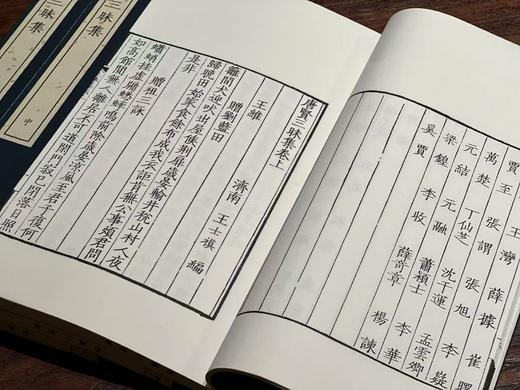 三昧集
三昧集 中
賈至 王灣 薛據
萬楚 張謂 張旭 崔曙
元結 丁仙芝 沈千運 孟雲卿
梁鍠 元融 蕭穎士 李嶷
奚賈 李收 薛奇章 李華
楊諫
唐賢三昧集卷上
濟南 王士禛 編
王維
贈劉藍田
籬間犬迎吠出屋候荊扉歲晏輸井稅山村人夜
歸晚田始家食餘布成我衣詎肯無公事煩君問
是非
贈祖三詠
蠨蛸挂虛牖蟋蟀鳴前除歲晏涼風至君子復何
如高館闃無人離居不可道閑門寂已閉落日照